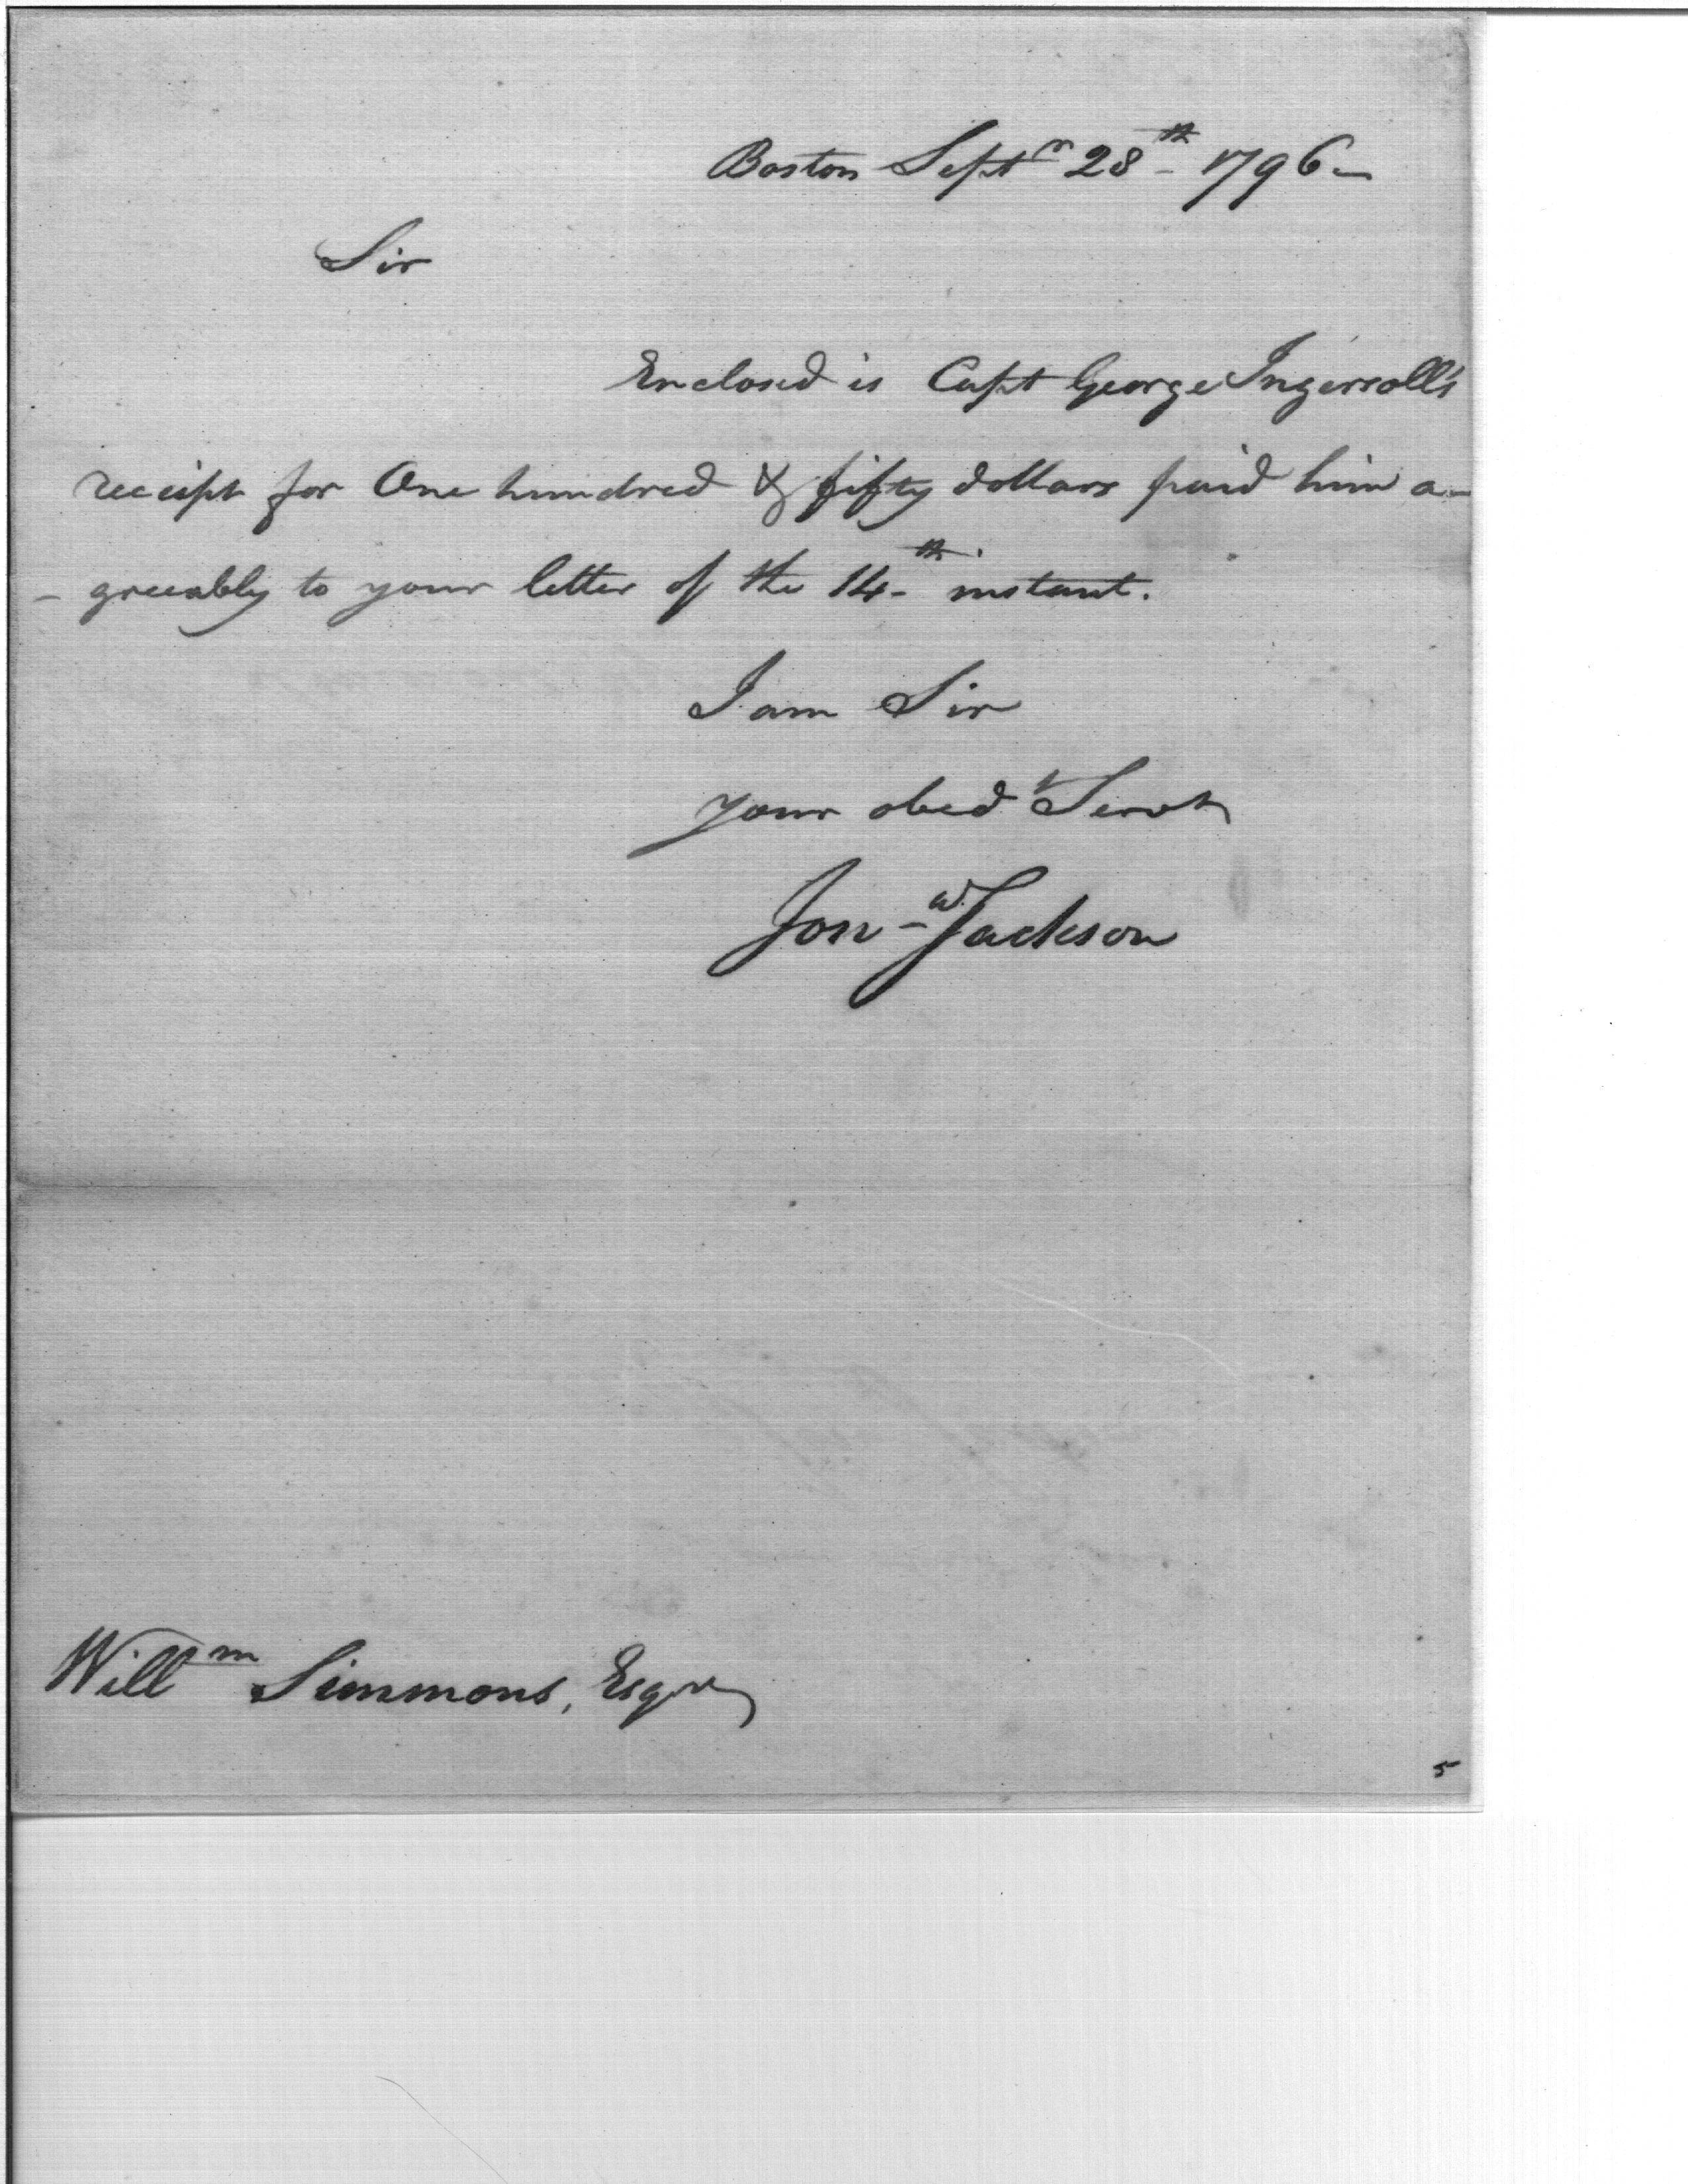 Boston Septr 28th 1796-
Sir
Enclosed is Capt George Ingersoll's
receipt for One hundred & fifty dollars paid him a-
-greeably to your letter of the 14th instant.
I am Sir
your obedt Servt
Jona Jackson
Willm Simmons, Esqr
5